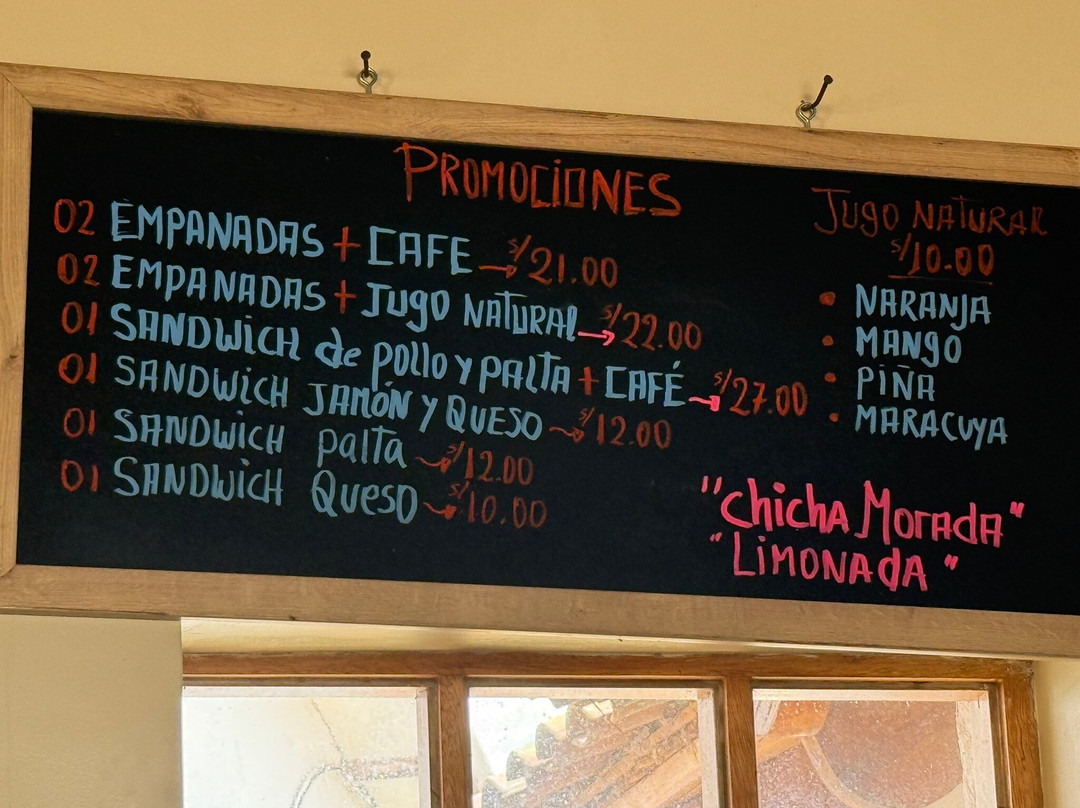 PROMOCIONES
02 EMPANADAS + CAFE → s/21.00
02 EMPANADAS + JUGO NATURAL → s/22.00
01 SANDWICH de pollo y palta + CAFÉ → s/27.00
01 SANDWICH JAMÓN Y QUESO → s/12.00
01 SANDWICH palta → s/12.00
01 SANDWICH QUESO → s/10.00
JUGO NATURAL
s/10.00
• NARANJA
• MANGO
• PIÑA
• MARACUYA
"Chicha Morada"
"LIMONADA"